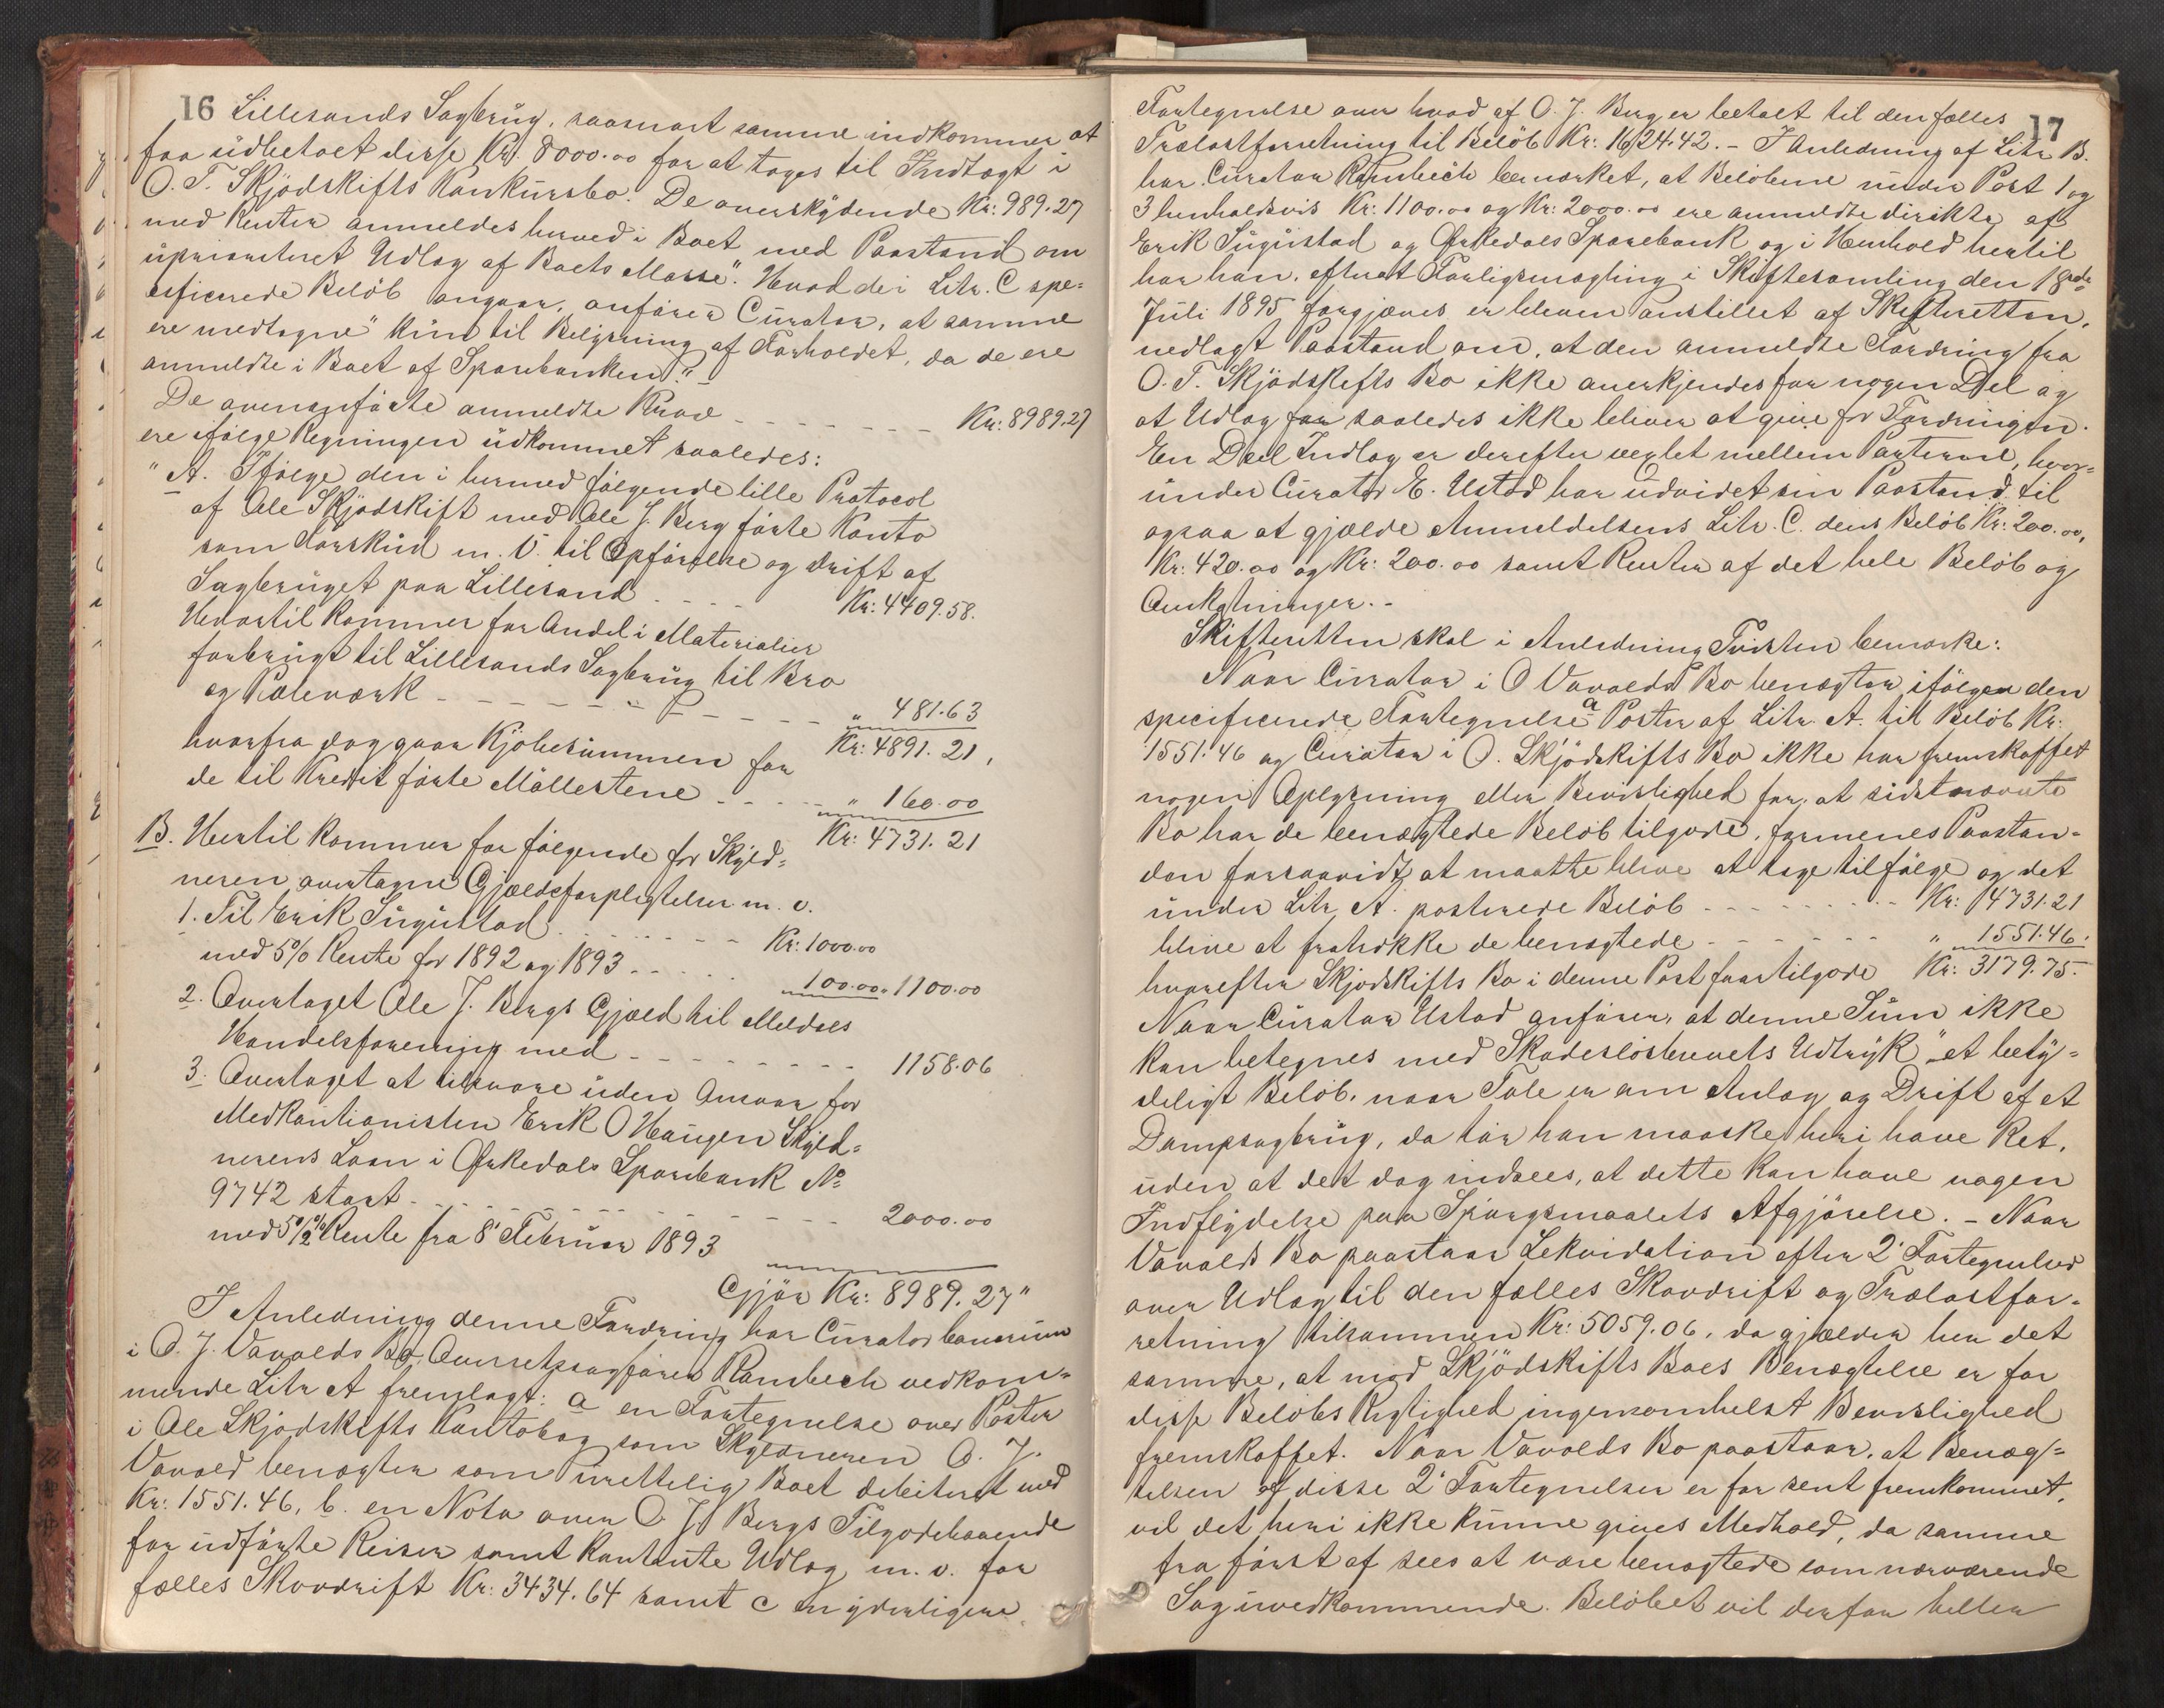 16 Lillesands Sagbrug, saasnart samme indkommer at
faa udbetaet disse Kr. 8000.00 for at tages til Indtægt i
O. T. Skjödskifts Konkursbo. De overskydende Kr: 989.27
med Renter anmeldes herved i Boet med Paastand om
uprioriteret Udlæg af Boets Masse". Hvad de i Litr. C spe=
cificerede Beløb angaar, anfører Curator, at samme
ere medtagne "kun til Belysning af Forholdet, da de ere
anmeldte i Boet af Sparebanken." -
De ovenanførte anmeldte Krav - - - - - - - Kr: 8989.27
ere ifølge Regningen udkommet saaledes:
"A. Ifølge den i hermed følgende lille Protocol
af Ole Skjödskift med Ole J. Berg førte Konto
som Forskud m. V. til Opførelse og Drift af
Sagbruget paa Lillesand - - - - Kr: 4409.58.
Hvortil kommer for Andel i Materialier
forbrugt til Lillesands Sagbrug til Bro
og Pæleværk - - - - - - - - - - " 481.63
Kr: 4891.21,
hvorfra dog gaar Kjøbesummen for
de til Kredit førte Möllestene - - - - - " 160.00
Kr: 4731.21
B. Hertil kommer for følgende for Skyld=
neren overtagne Gjældsforpligtelser m. v.
1. Til Erik Sugustad - - - - - - Kr: 1000.00
med 5% Rente for 1892 og 1893 - - - - - 100.00 " 1100.00
2. Overtaget Ole J. Bergs Gjæld til Meldals
Handelsforening med - - - - - - - - 1158.06
3. Overtaget at tilsvare uden Ansvar for
Medkautionisten Erik O Haugen Skyld=
nerens Laan i Ørkedals Sparebank No
9742 stort - - - - - - - - - - - - - 2000.00
med 5½% Rente fra 8' Februar 1893
Gjør Kr: 8989.27"
I Anledning denne Fordring har Curator bonorum
i O. J. Vavolds Bo, Overretssagfører Rambech vedkom=
mende Litr A fremlagt: a en Fortegnelse over Poster
i Ole Skjödskifts Kontobog som Skyldneren O. J.
Vavold benægter som urettelig Boet debiteret med
Kr: 1551.46, b. en Nota over O. J. Bergs Tilgodehavende
for udførte Reiser samt kontante Udlæg m. v. for
fælles Skovdrift Kr: 3434.64 samt c en yderligere
17
Fortegnelse over hvad af O. J. Berg er betaet til den fælles
Trælastforretning til Beløb Kr: 1624.42. - I Anledning af Litr B.
har Curator Rambech bemærket, at Beløbene under Post 1 og
3 henholdsvis Kr: 1100.00 og Kr: 2000.00 ere anmeldte direkte af
Erik Sugustad og Ørkedals Sparebank og i Henhold hertil
har han, efterat Forligsmægling i Skiftesamling den 18de
Juli 1895 forgjæves er bleven anstillet af Skifteretten,
nedlagt Paastand om, at den anmeldte Fordring fra
O. T. Skjödskifts Bo ikke anerkjendes for nogen Del og
at Udlæg saaledes ikke bliver at give for Fordringen.
En Deel Indlæg er derefter vexlet mellem Parterne, hvor=
under Curator E. Ustad har udvidet sin Paastand til
ogsaa at gjælde Anmeldelsens Litr. C. dens Beløb Kr: 200.00,
Kr: 420.00 og Kr: 200.00 samt Renter af det hele Beløb og
Omkostninger. -
Skifteretten skal i Anledning Tvisten bemærke:
Naar Curator i O Vavolds Bo benægter ifølge den
specificerede Fortegnelse a Poster af Litr. A. til Beløb Kr.
1551.46 og Curator i O. Skjödskifts Bo ikke har fremskaffet
nogen Oplysning eller Bevislighed for, at sidstnævnte
Bo har de benægtede Beløb tilgode, formenes Paastan-
den forsaavidt at maatte blive at tage tilfølge og det
under Litr A. posterede Beløb - - - - - - - - - Kr: 4731.21
blive at fratrække de benægtede - - - - - - - " 1551.46.
hvorefter Skjödskifts Bo i denne Post faar tilgode Kr: 3179.75.
Naar Curator Ustad anfører, at denne Sum ikke
kan betegnes med Skadesløsbrevets Udtryk "et bety=
deligt Beløb, naar Tale er om Anlæg og Drift af et
Dampsagbrug, da tør han maaske heri have Ret,
uden at det dog indsees, at dette kan have nogen
Indflydelse paa Spørgsmaalets Afgjørelse. - Naar
Vavolds Bo paastaar Lekvidation efter 2' Fortegnelser
over Udlæg til den fælles Skovdrift og Trælastfor-
retning tilsammen Kr: 5059.06, da gjælder her det
samme, at mod Skjödskifts Boes Benægtelse er for
disse Beløbs Rigtighed ingensomhelst Bevislighed
fremskaffet. Naar Vavolds Bo paastaar, at Benæg=
telsen af disse 2' Fortegnelser er for sent fremkommet,
vil det heri ikke kunne gives Medhold, da samme
fra først af sees at være benægtede som nærværende
Sag uvedkommende. Beløbet vil derfor heller